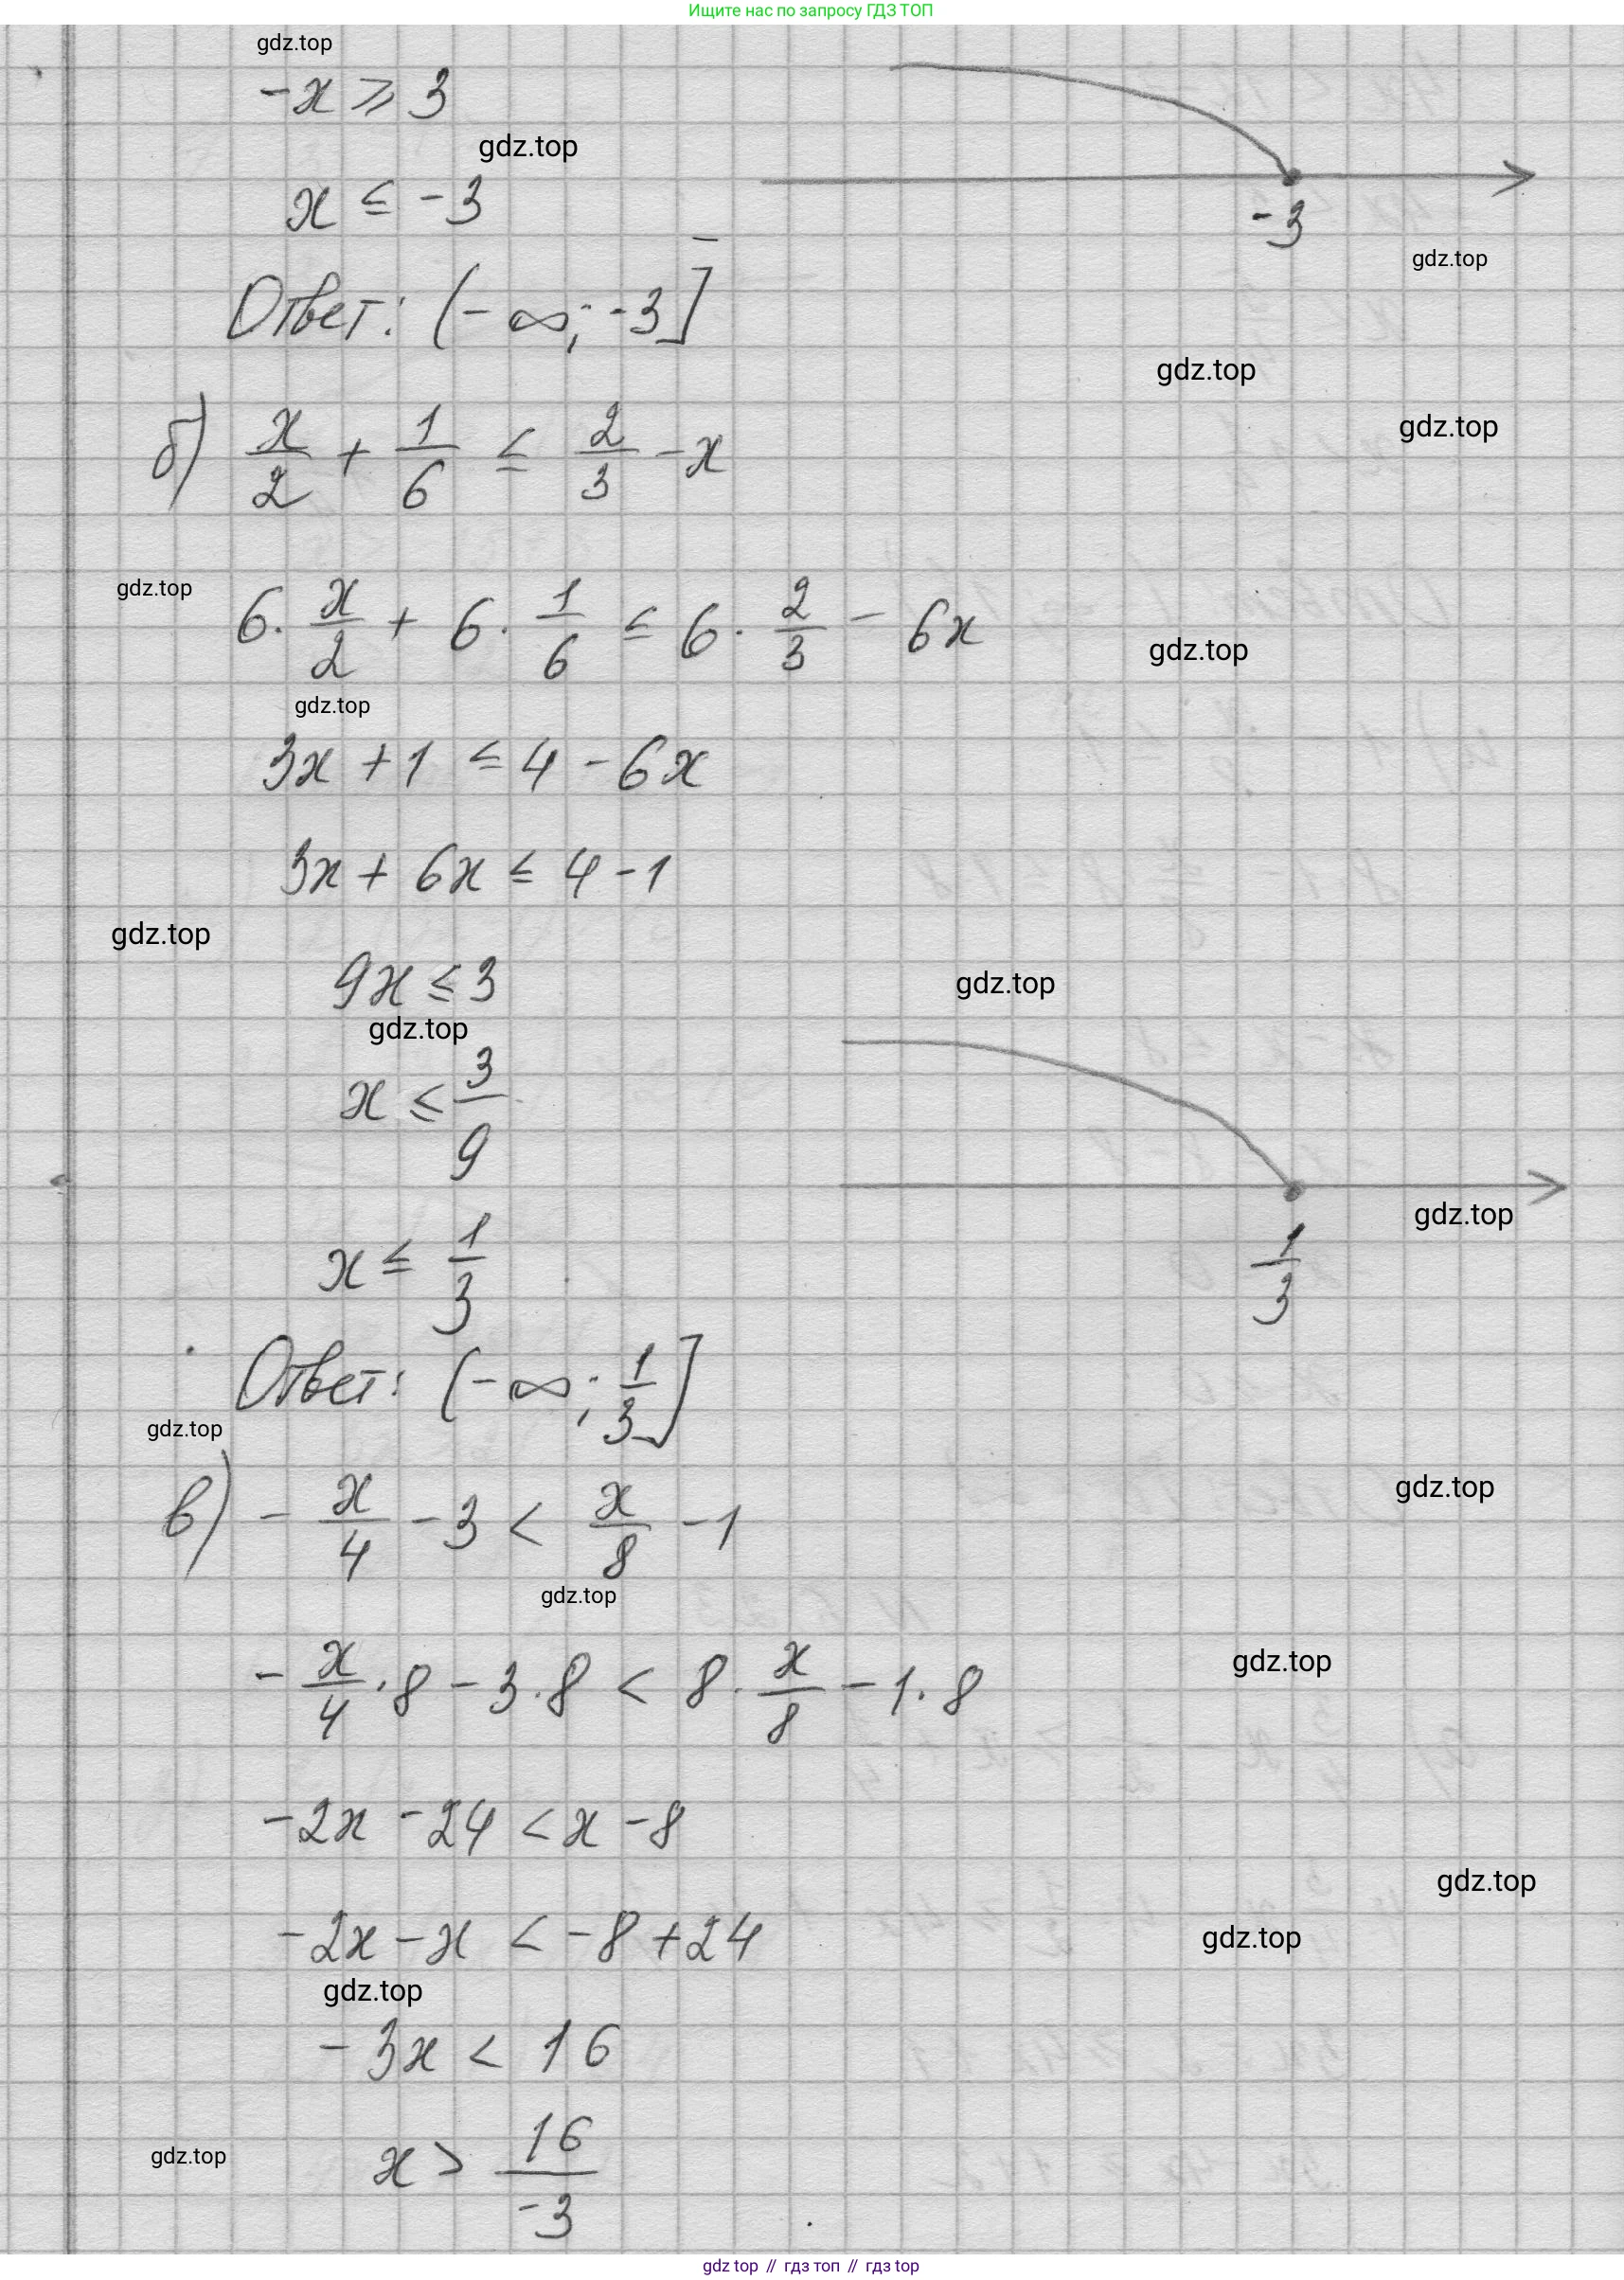 Ищите нас по запросу ГДЗ ТОП
gdz.top
-x ⩾ 3
gdz.top
x ≤ -3
-3
gdz.top
Ответ: (-∞; -3]
gdz.top
gdz.top
б) x/2 + 1/6 ≤ 2/3 - x
gdz.top
6·x/2 + 6·1/6 ≤ 6·2/3 - 6x
gdz.top
gdz.top
3x + 1 ≤ 4 - 6x
3x + 6x ≤ 4 - 1
gdz.top
9x ≤ 3
gdz.top
gdz.top
x ≤ 3/9
gdz.top
x ≤ 1/3
1/3
Ответ: (-∞; 1/3]
gdz.top
в) -x/4 - 3 < x/8 - 1
gdz.top
gdz.top
-x/4·8 - 3·8 < 8·x/8 - 1·8
gdz.top
-2x - 24 < x - 8
gdz.top
-2x - x < -8 + 24
gdz.top
gdz.top
-3x < 16
gdz.top
x > 16/-3
gdz top // гдз топ // гдз top